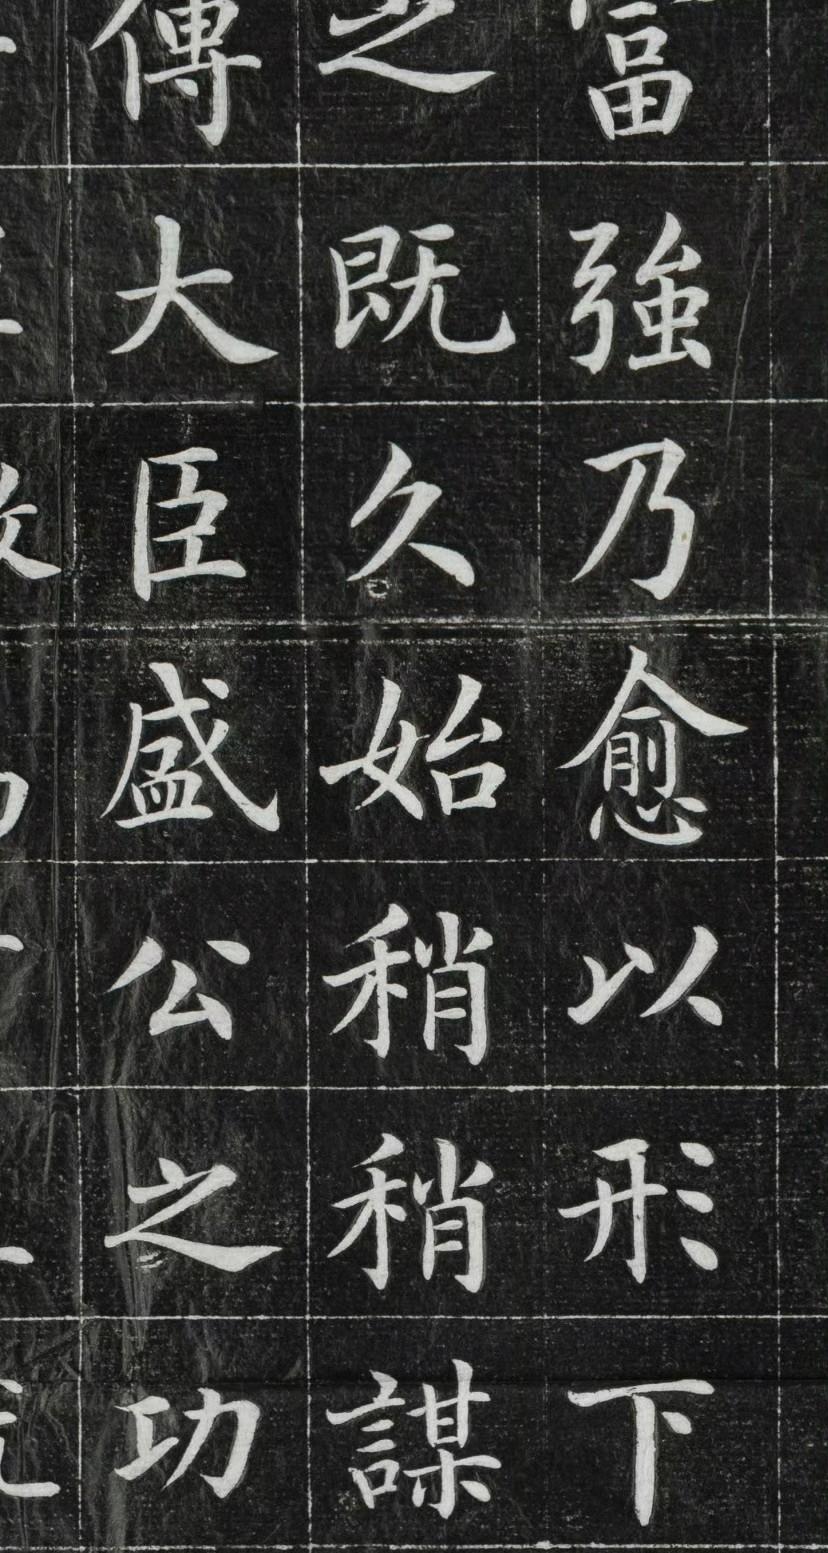 富強乃愈以形下
之既久始稍稍謀
傳大臣盛公之功